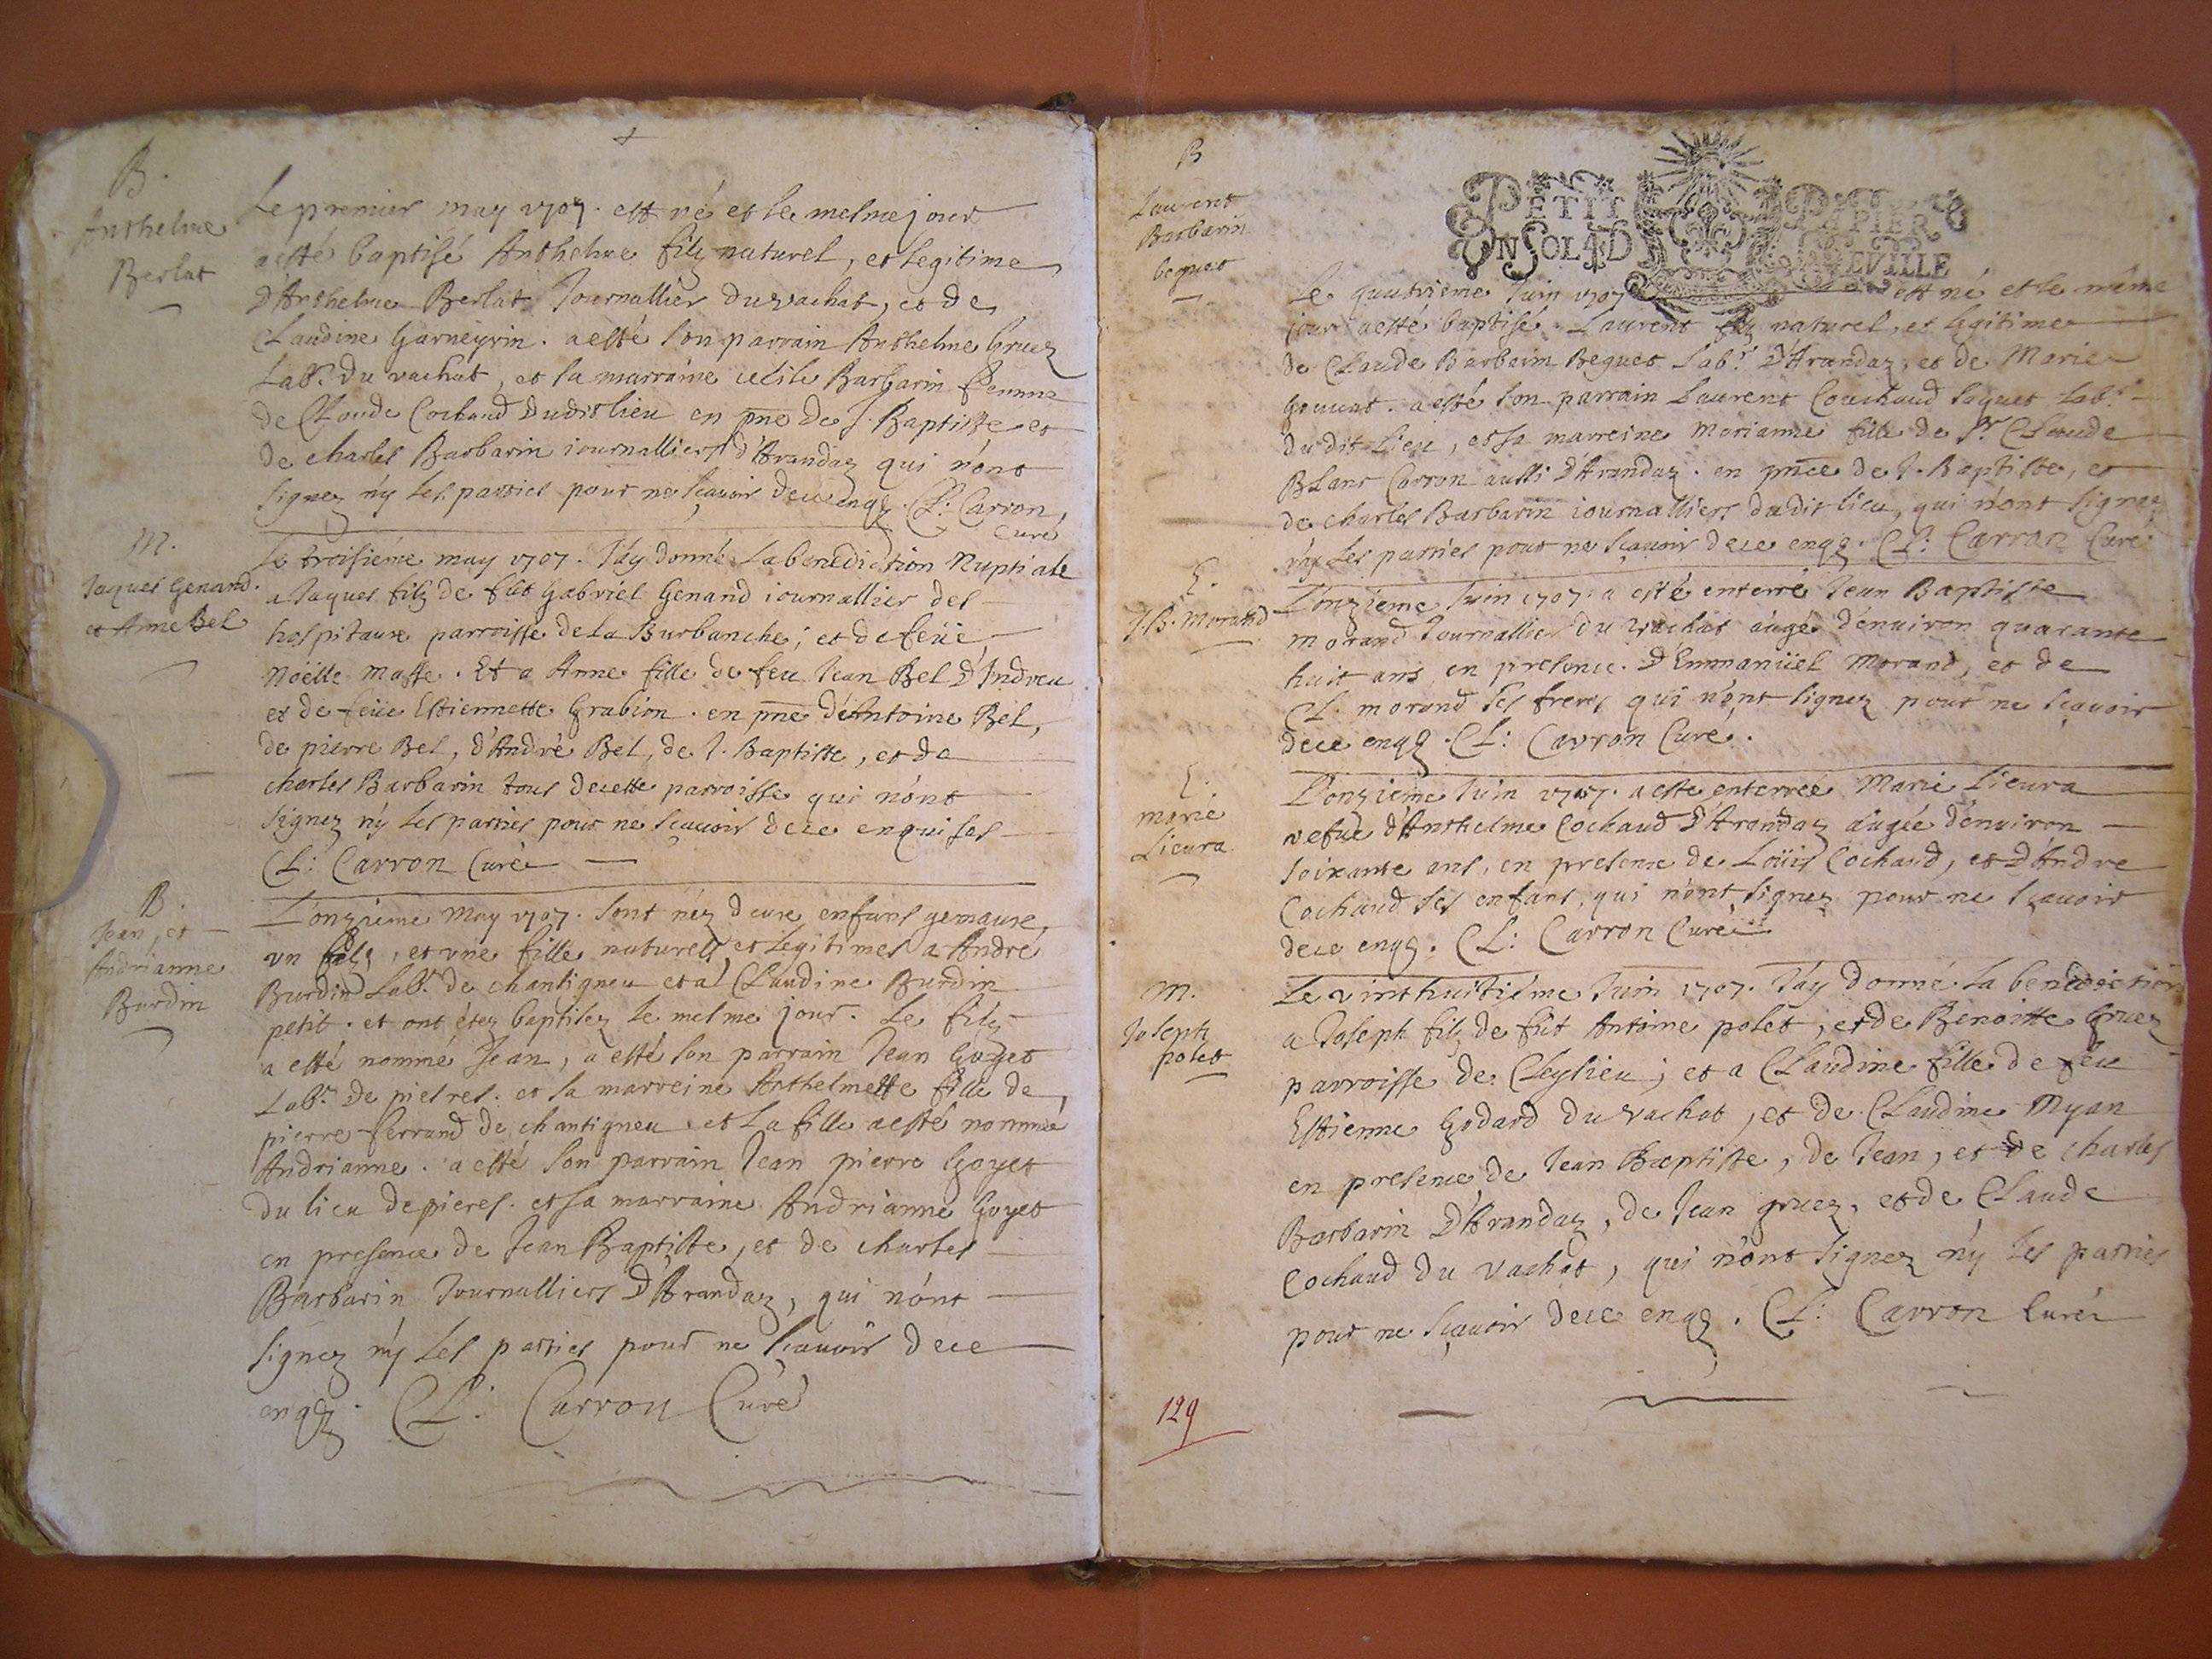 B.
Anthelme
Berlat
Le premier may 1707. est né et le mesme jour
a esté baptisé Anthelme filz naturel, et legitime
d'Anthelme Berlat Journallier du vachat, et de
Claudine Garneyrin. a esté son parrain Anthelme Gruez
Labr. du vachat, et sa marraine cecile Barbarin femme
de Cloude Cochaud dudit lieu en pñe de J. Baptiste et
de charles Barbarin iournalliers d'Arandaz qui n'ont
signez n'y les parties pour ne sçavoir de ce enqz. Cl: Carron,
Curé
M.
Jaques Genand
et Anne Bel
Le troisiéme may 1707. J'áy donné La benediction Nuptiale
a Jaques filz de fut Gabriél Genand iournallier des
hospitaux parroisse de La Burbanche; et de feüe
Noëlle Masse. Et a Anne fille de feu Jean Bel d'Indrieu
et de feüe Estiennette Grabion. en pñe d'Antoine Bel,
de pierre Bel, d'André Bel, de J. Baptiste, et de
charles Barbarin tous de cette parroisse qui n'ont
signez n'y les parties pour ne sçavoir de ce enquises
Cl: Carron Curé
B.
Jean, et
Andrianne
Burdin
L'onziéme May 1707. sont néz deux enfans gemaux,
un filz, et une fille naturels et legitimes a André
Burdin Labr. de chantigneu et a Claudine Burdin
petit. et ont étez baptisez le mesme jour. Le filz
a esté nommé Jean, a esté son parrain Jean Goyet
Labr. De pieres. et sa marreine Anthelmette fille de
pierre ferrand de chantigneu. et La fille a esté nommée
Andrianne. a esté son parrain Jean pierre Goyet
du lieu de pieres. et sa marraine Andrianne Goyet
en presence de Jean Baptiste, et de charles
Barbarin Journalliers d'Arandaz, qui n'ont
signez n'y Les parties pour ne sçavoir de ce
enqz. Cl: Carron Curé
B
Laurent
Barbarin
beguet
PETIT PAPIER
UN SOL 4D LA FEVILLE
Le quatriéme Juin 1707 est né et le méme
jour a esté baptisé Laurent filz naturel, et legitime
de Claude Barbarin Beguet Labr. d'Arandaz, et de Marie
Gouvat. a esté son parrain Laurent Couchaud Jaquet Labr.
du dit Lieu, et sa marreine Marianne fille de Sr. Claude
Blanc Carron aussi d'Arandaz. en pñce de J. Baptiste, et
de charles Barbarin iournalliers dudit lieu, qui n'ont signez
n'y Les parties pour ne sçavoir de ce enqz. Cl: Carron Curé
E.
J. B. Morand
L'onziéme Juin 1707. a esté enterré Jean Baptiste
morand Journallier du Vachat áagé d'environ quarante
huit ans en presence. d'Emmanüel Morand, et de
Cl. morand ses freres qui n'ont signez pour ne sçavoir
de ce enqz. Cl: Carron Curé.
E.
Marie
Lieura
L'onziéme Juin 1707. a esté enterrée Marie Lieura
vefue d'Anthelme Cochaud d'Arandaz áagée d'environ
soixante ans, en presence de Loüis Cochaud, et d'André
Cochaud ses enfans, qui n'ont signez pour ne sçavoir
de ce enqz. Cl: Carron Curé
M.
Joseph
polet
Le vinthuitiéme Juin 1707. J'áy donné La benediction
a Joseph filz de fut Antoine polet, et de Benoitte Gruez
parroisse de Cleylieu; et a Claudine fille de feu
Estienne Godard du Vachat, et de Claudine Myan
en presence de Jean Baptiste, de Jean, et de charles
Barbarin d'Arandaz, de Jean gruez, et de Claude
Cochaud du Vachat, qui n'ont signez n'y Les parties
pour ne sçavoir de ce enqz. Cl: Carron Curé
129